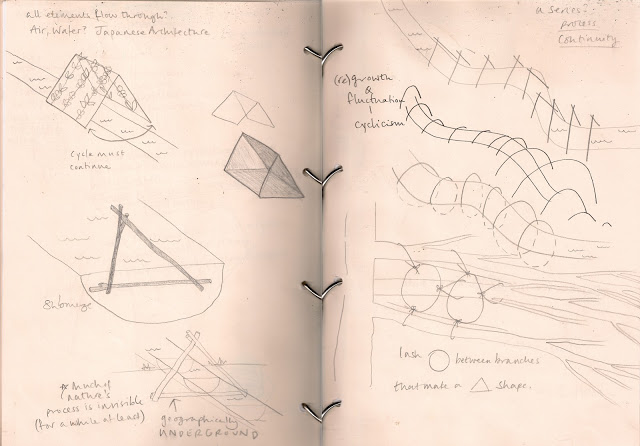 all elements flow through?
Air, Water? Japanese Architecture
Cycle must
continue
Submerge
* Much of
nature's
process is invisible
(for a while at least)
geographically
UNDERGROUND
a series?
process
continuity
(re)growth
&
fluctuation
cyclicism
lash ○ between branches
that make a △ shape.